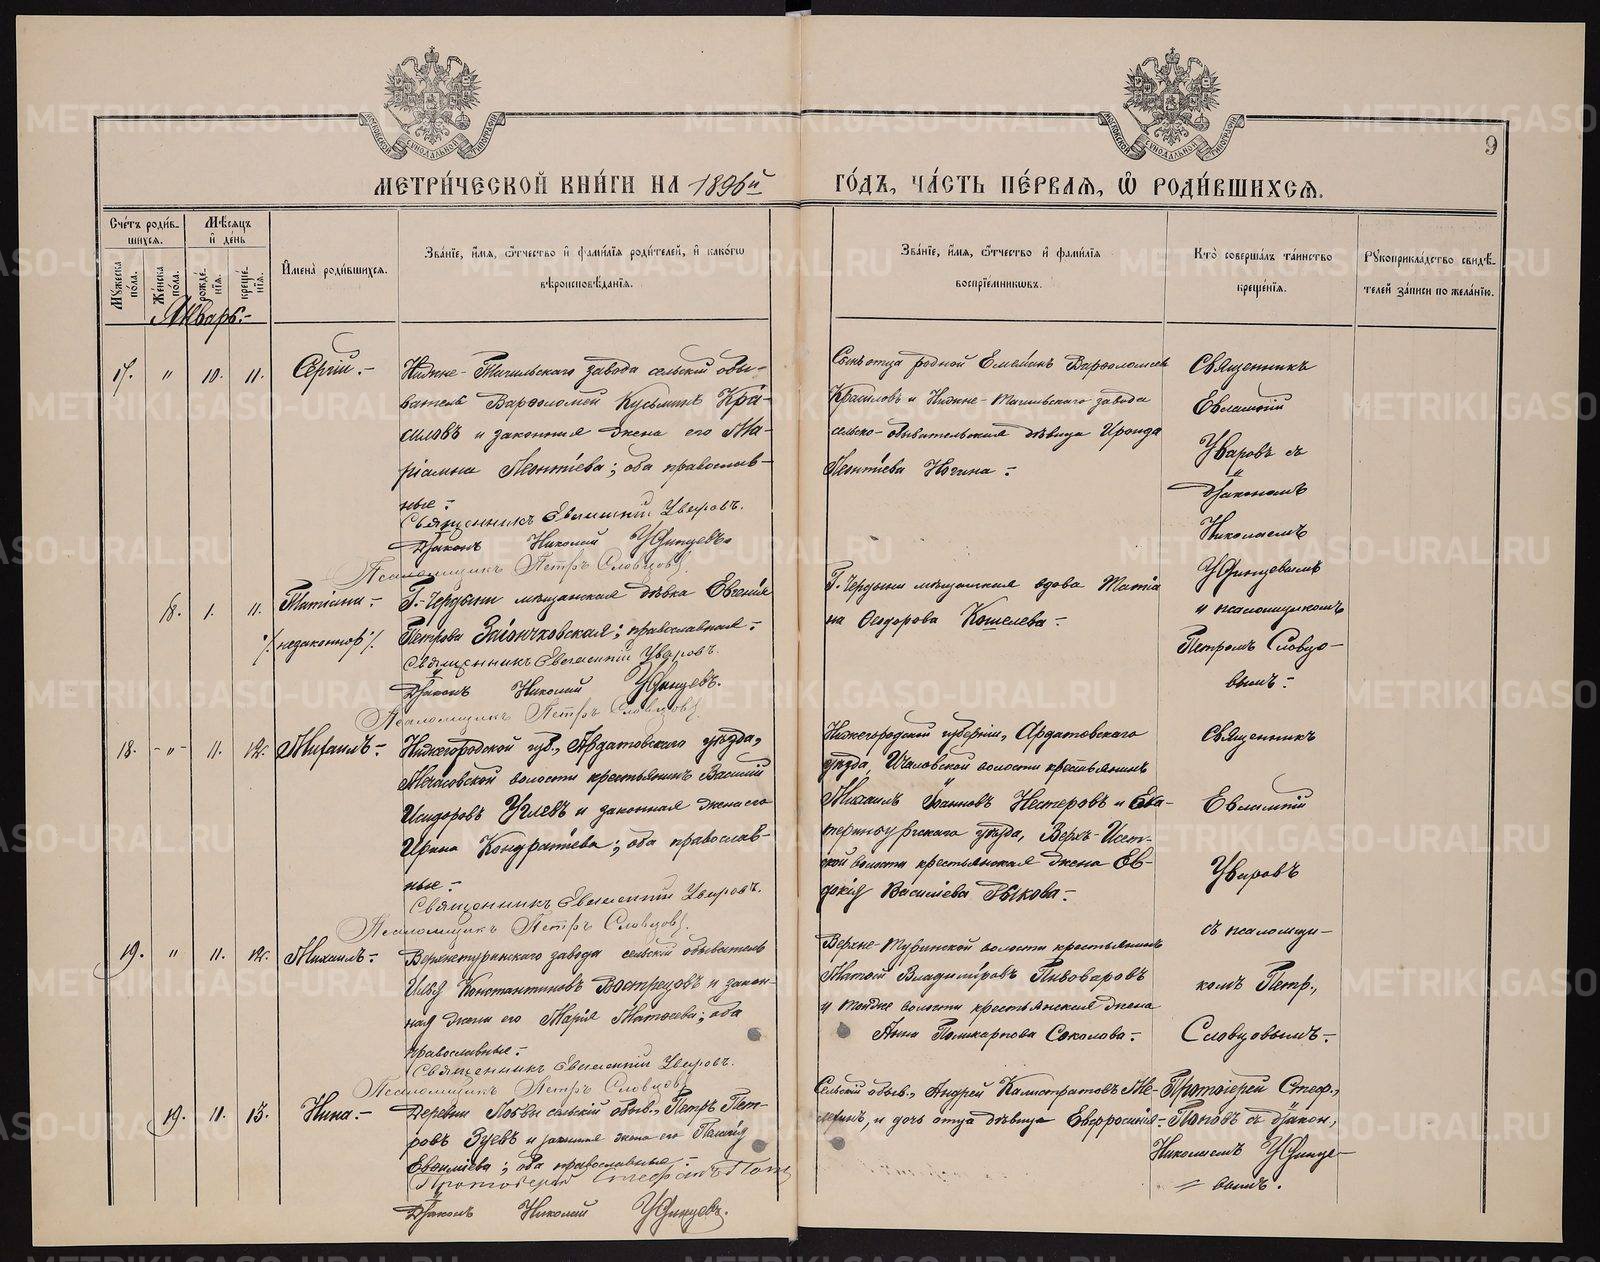 МЕТРИ́ЧЕСКОЙ КНИ́ГИ НА 1896й
ГО́ДЪ, ЧА́СТЬ ПЕ́РВАЯ, Ѿ РОДИ́ВШИХСЯ.
9
Сче́тъ роди́в-
шихся.
Му́жеска по́ла.
Же́нска по́ла.
Мѣ́сяцъ
и҆ де́нь
рожде́-
нїя.
креще́-
нїя.
И҆мена̀ роди́вшихся.
Зва́нїе, и҆́мя, ѻ҆́тчество и҆ фами́лїя роди́телей, и҆ како́гѡ
вѣроисповѣ́данїя.
Зва́нїе, и҆́мя, ѻ҆́тчество и҆ фами́лїя
воспрїе́мниковъ.
Кто̀ соверша́лъ та́инство
креще́нїя.
Рꙋкоприкла́дство свидѣ́-
телей за́писи по жела́нїю.
Январь.-
17. " 10. 11.
Сергій.-
Нижне-Тагильскаго завода сельскій обы-
ватель Варѳоломей Кузьминъ Кра-
силовъ и законная жена его Ма-
ріамна Леонтіева; оба православ-
ные.-
Священникъ Евлампій Уваровъ.
Діаконъ Николай Удинцевъ.
Псаломщикъ Петръ Словцовъ.
Сынъ отца родной Емельянъ Варѳоломеевъ
Красиловъ и Нижне-Тагильскаго завода
сельско-обывательская дѣвица Ироида
Леонтіева Ногина.-
Священникъ
Евлампій
Уваровъ съ
Діакономъ
Николаемъ
Удинцевымъ
и псаломщикомъ
Петромъ Словцо-
вымъ.-
18. 1. 11.
Татіана.-
/незаконнор./
Г. Чердыни мѣщанская дѣвка Евгенія
Петрова Загончковская; православная.-
Священникъ Евлампій Уваровъ.
Діаконъ Николай Удинцевъ.
Псаломщикъ Петръ Словцовъ.
Г. Чердыни мѣщанская вдова Татіа
на Ѳеодорова Кошелева.-
18. -"- 11. 12.
Михаилъ.-
Нижегородской губ., Ардатовскаго уѣзда,
волости крестьянинъ Василій
Исидоровъ Углевъ и законная жена его
Ирина Кондратіева; оба православ-
ные.-
Священникъ Евлампій Уваровъ.
Псаломщикъ Петръ Словцовъ.
Нижегородской губерніи, Ардатовскаго
уѣзда, волости крестьянинъ
Михаилъ Іоанновъ Нестеровъ и Ека-
теринбургскаго уѣзда, Верхъ-Исет-
ской волости крестьянская жена Ев-
докія Василіева Рыкова.-
Священникъ
Евлампій
Уваровъ
съ псаломщи-
комъ Петр.,
Словцовымъ.-
19. " 11. 12.
Михаилъ.-
Верхнетуринскаго завода сельскій обыватель
Илья Константиновъ Востренцовъ и закон-
ная жена его Марія Матѳеева; оба
православные.-
Священникъ Евлампій Уваровъ.
Псаломщикъ Петръ Словцовъ.
Верхне-Туринской волости крестьянинъ
Матѳей Владиміровъ Пивоваровъ
и тойже волости крестьянская жена
Анна Поликарпова Соколова.-
19. 11. 13.
Нина.-
Деревни сельскій обыв., Петръ Пет-
ровъ Зуевъ и законная жена его Пелагія
Евѳиміева; оба православные.-
Протоіерей Стефанъ Попо
Діаконъ Николай Удинцевъ.
Сельскій обыв., Андрей Калистратовъ Ме-
и дочь отца дѣвица Евфросинія.-
Протоіерей Стеф.,
Поповъ съ діакон.,
Николаемъ Удинце-
вымъ.